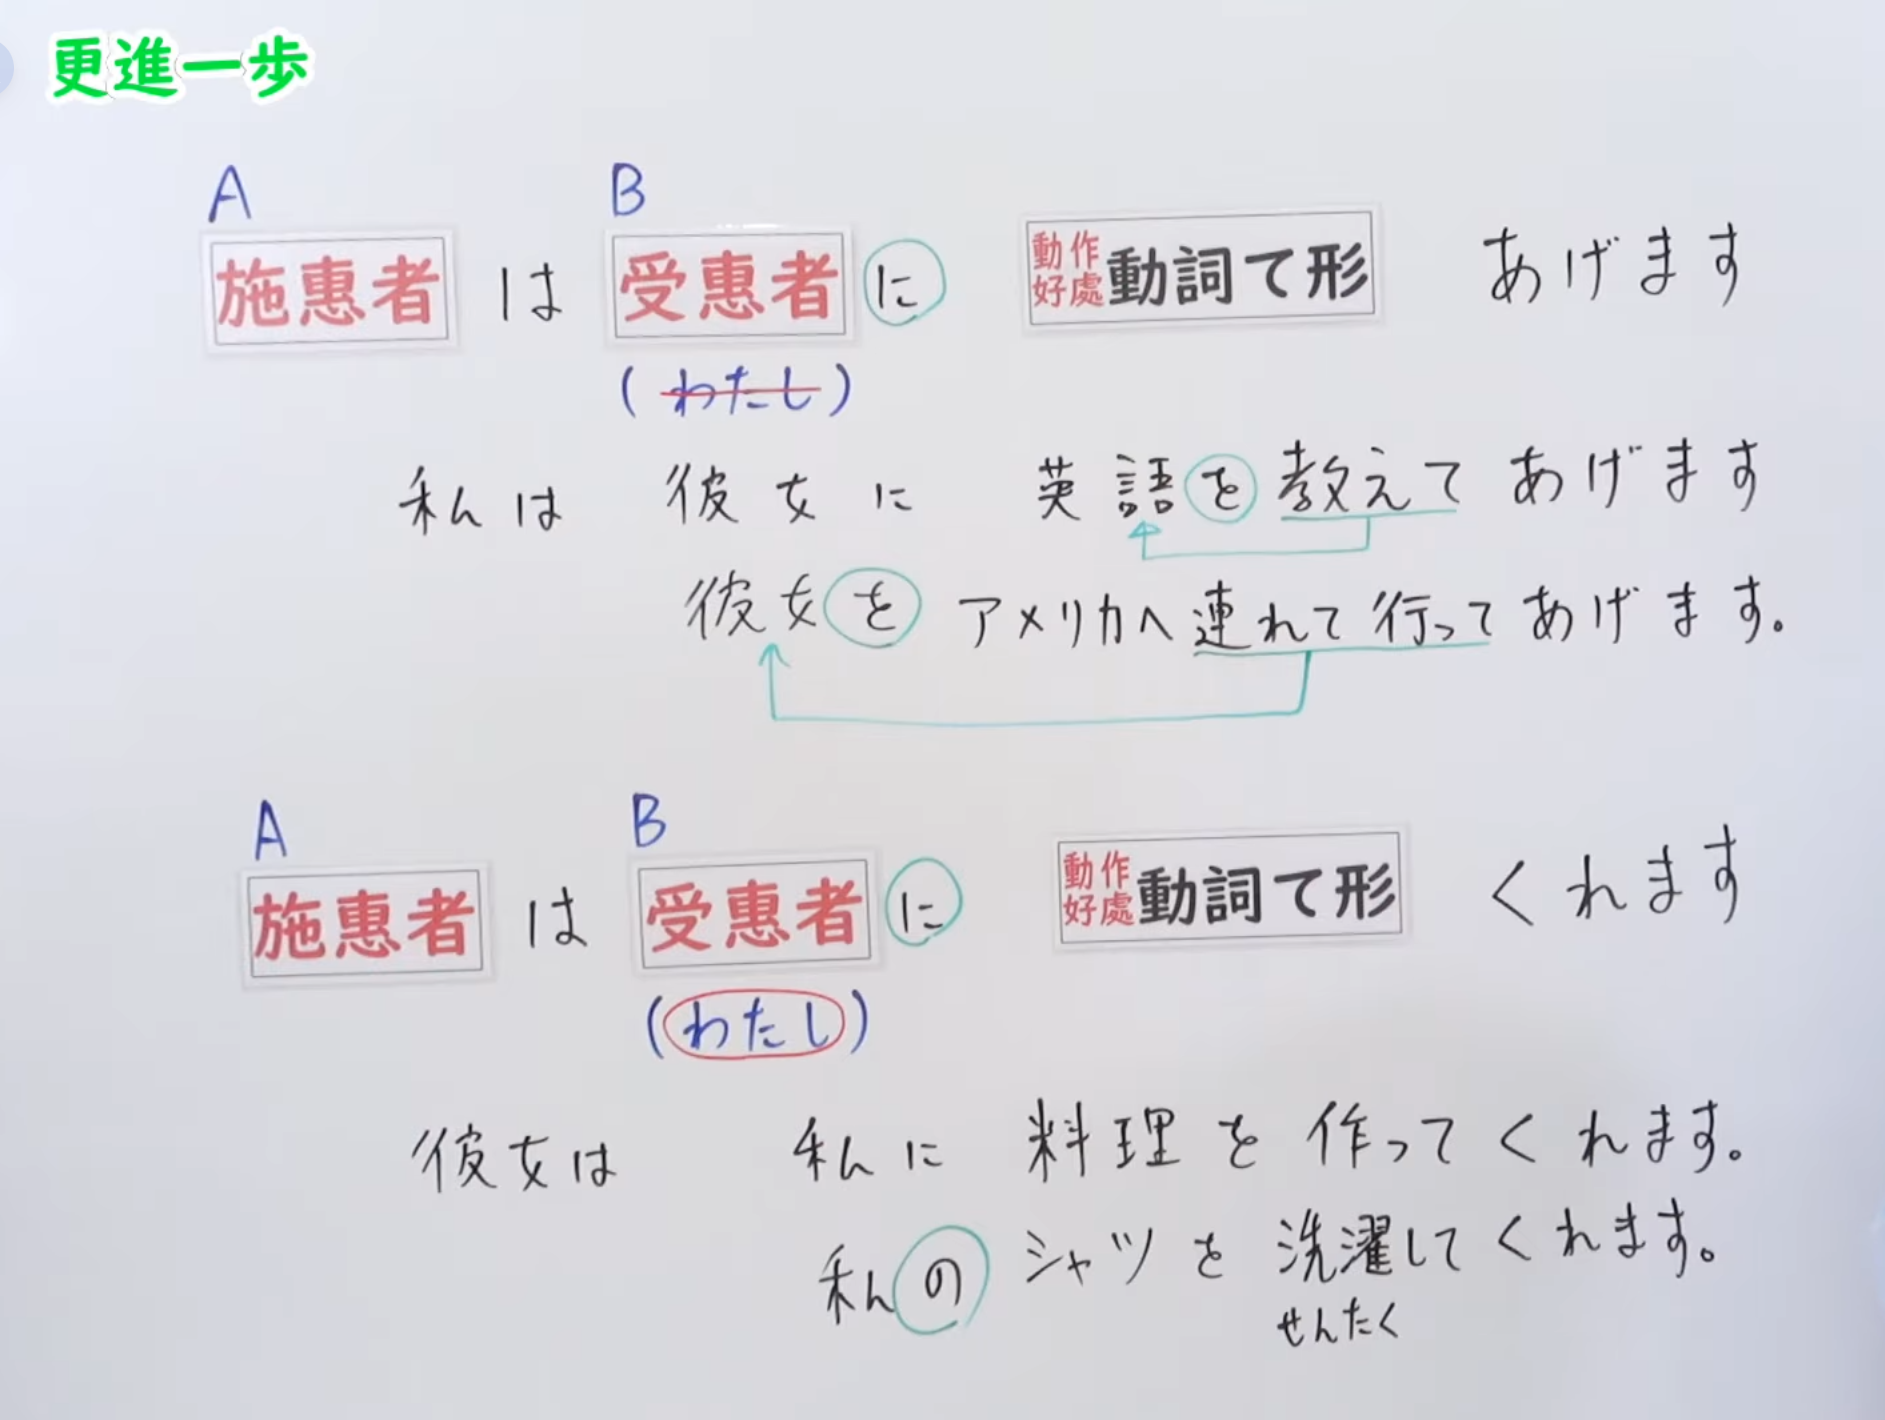 更進一歩
A B
施恵者 は 受恵者 に 動作好處 動詞て形 あげます
(わたし)
私は 彼女に 英語を教えてあげます
彼女を アメリカへ連れて行ってあげます。
A B
施恵者 は 受恵者 に 動作好處 動詞て形 くれます
(わたし)
彼女は 私に 料理を作ってくれます。
私の シャツを洗濯してくれます。
せんたく